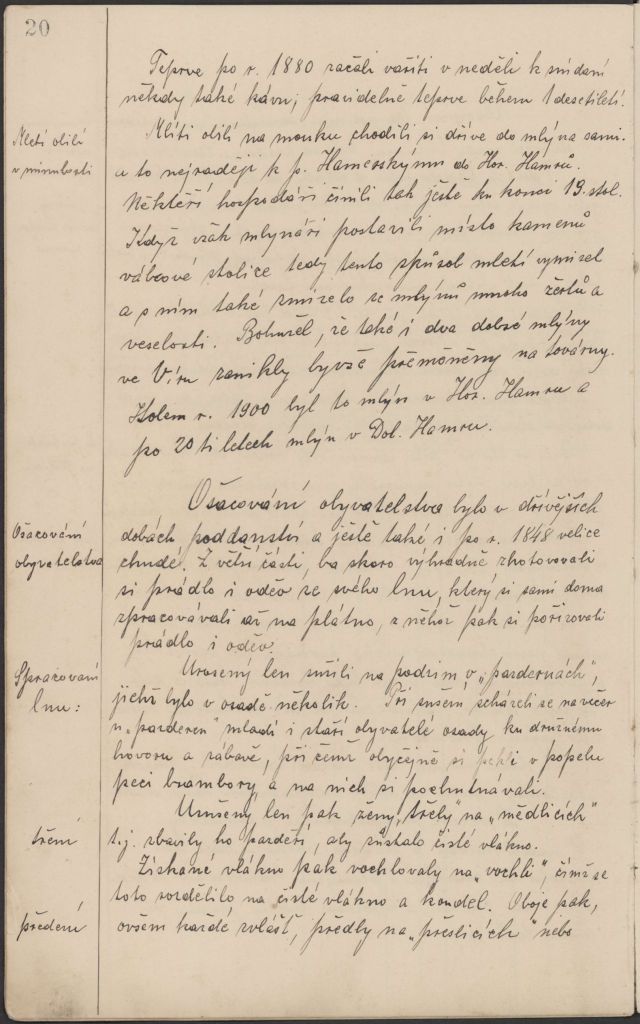 20
Teprve po r. 1880 začali vařiti v neděli k snídani
někdy také kávu; pravidelně teprve během 1 desetiletí.
Mletí obilí
v minulosti
Mlíti obilí na mouku chodili si dříve do mlýna sami
a to nejraději k p. Hamerskýmu do Hor. Hamrů.
Někteří hospodáři činili tak ještě ku konci 19. stol.
Když však mlynáři postavili místo kamenů
válcové stolice tedy tento způsob mletí vymizel
a s ním také zmizelo se mlýnů mnoho žertů a
veselosti. Bohužel, že také i dva dobré mlýny
ve Víru zanikly byvše přeměněny na továrny.
Kolem r. 1900 byl to mlýn v Hor. Hamru a
po 20ti letech mlýn v Dol. Hamru.
Ošacování
obyvatelstva
Ošacování obyvatelstva bylo v dřívějších
dobách poddanství a ještě také i po r. 1848 velice
chudé. Z větší části, ba skoro výhradně zhotovovali
si prádlo i oděv ze svého lnu, který si sami doma
zpracovávali až na plátno, z něhož pak si pořizovali
prádlo i oděv.
Spracování
lnu:
Urosený len sušili na podzim v „pazdernách“,
jichž bylo v osadě několik. Při sušení scházeli se navečer
u „pazderen“ mladí i staří obyvatelé osady ku družnému
hovoru a zábavě, při čemž obyčejně si pekli v popelu
peci brambory a na nich si pochutnávali.
Usušený len pak ženy „třely“ na „mědlicích“
tření
t.j. zbavily ho pazdeří, aby zůstalo čisté vlákno.
Získané vlákno pak vochlovaly na „vochli“, čímž se
toto rozdělilo na čisté vlákno a koudel. Oboje pak,
předení
ovšem každé zvlášť, předly na „přeslicích“ nebo